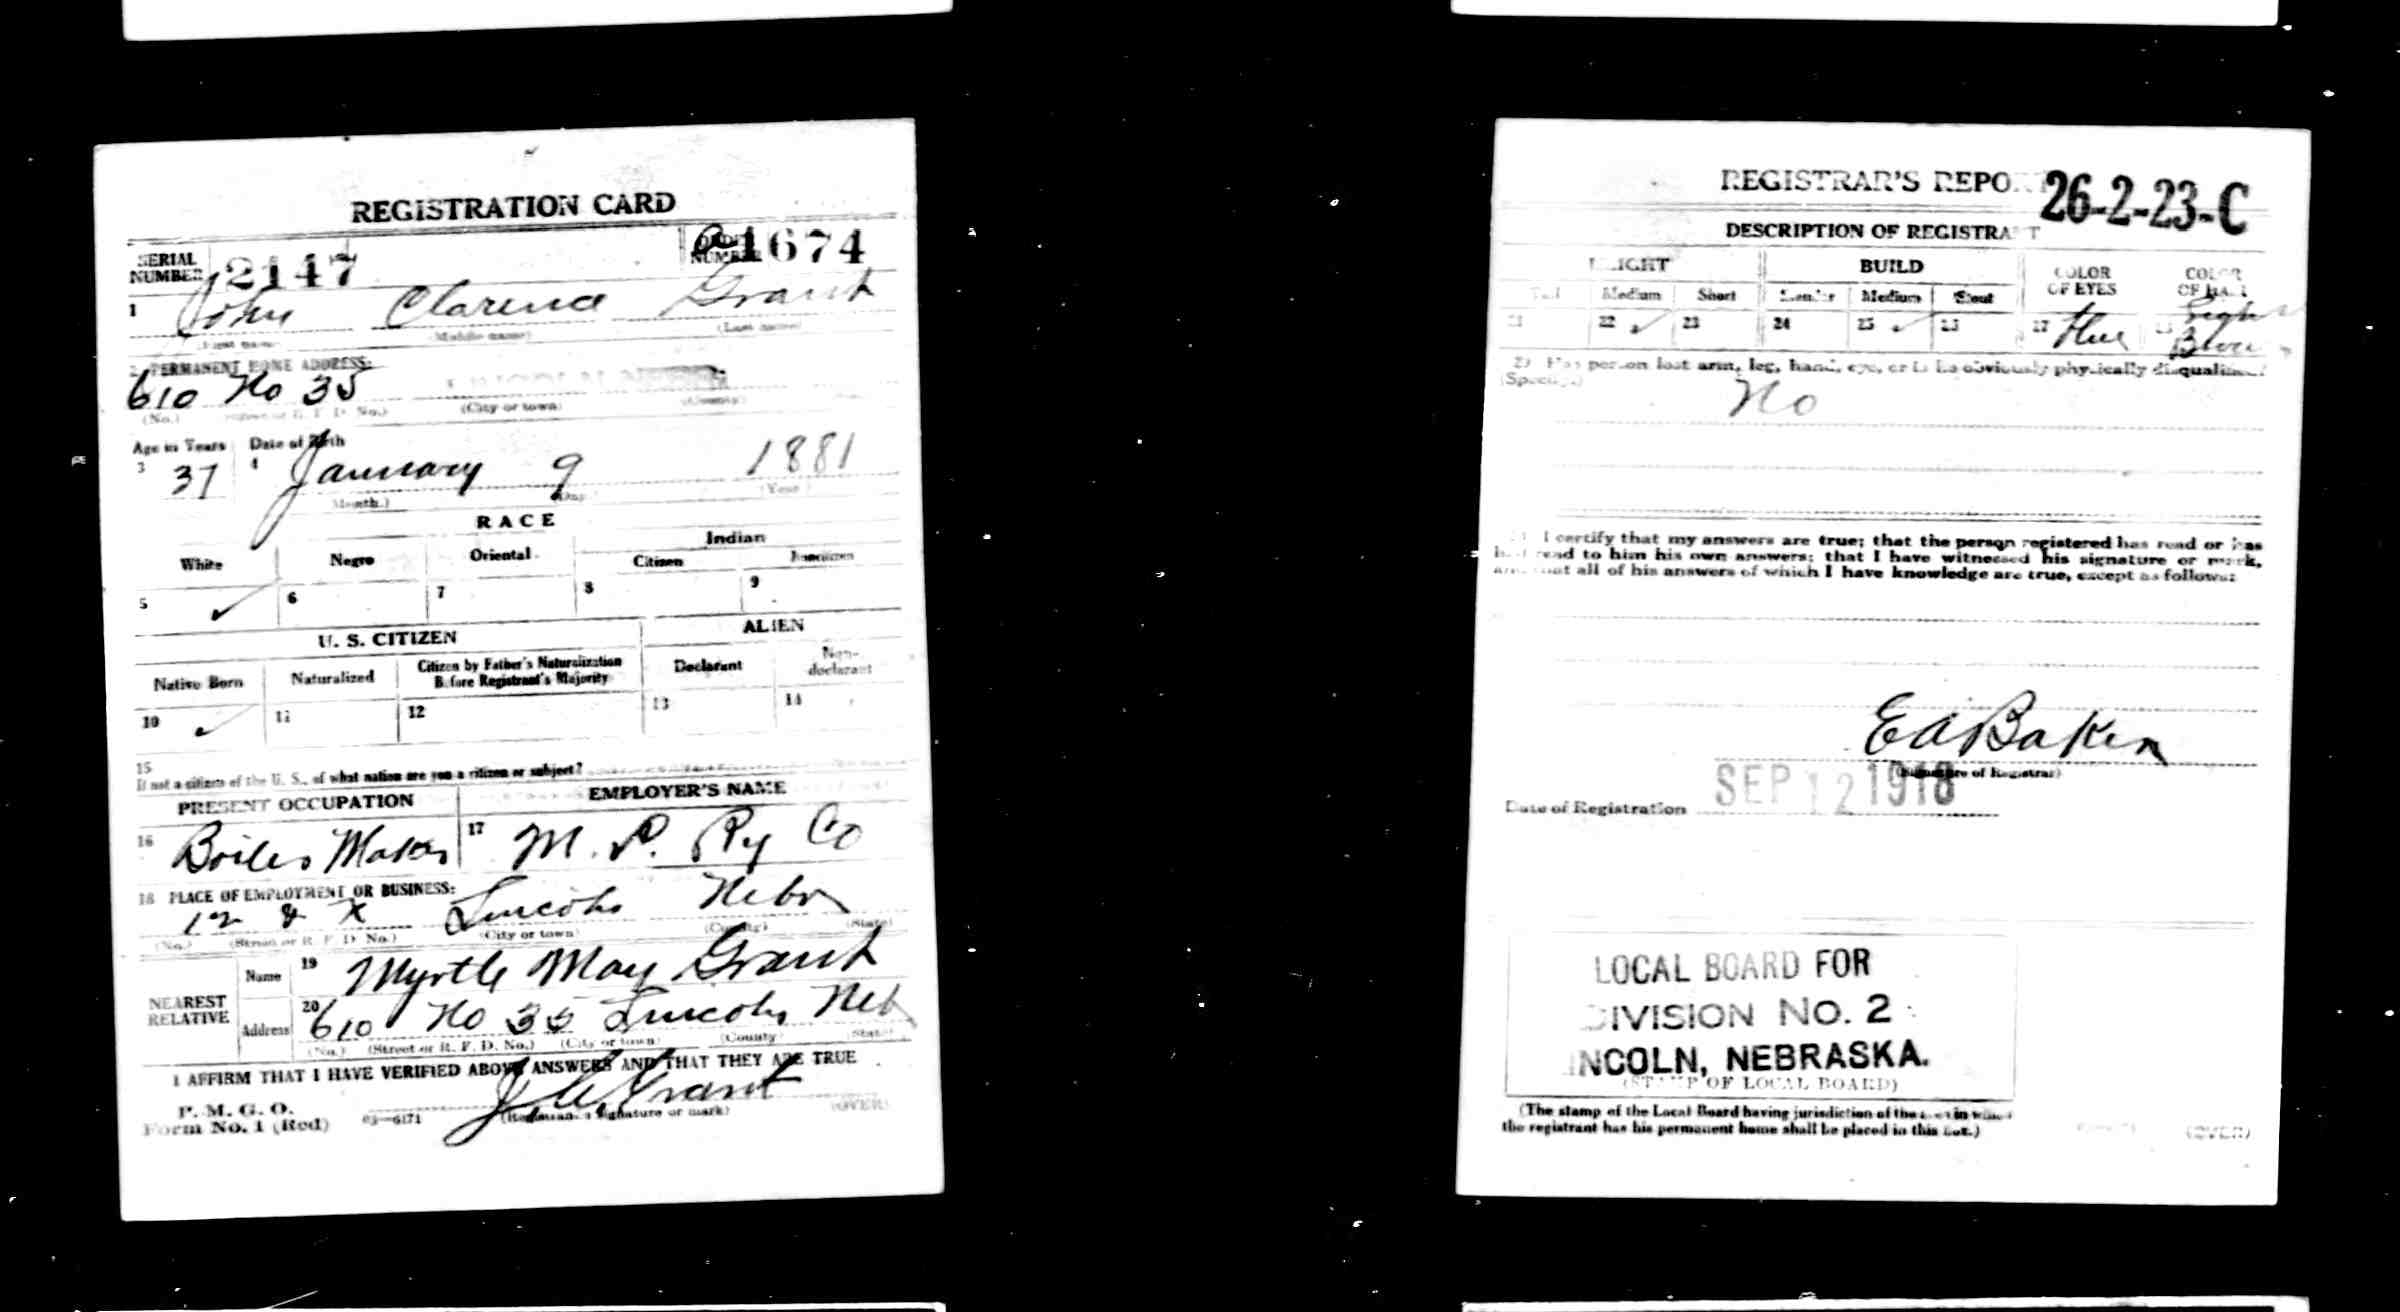 REGISTRATION CARD
SERIAL NUMBER 2147 ORDER NUMBER A 1674
1 John Clarence Grant
(First name) (Middle name) (Last name)
2 PERMANENT HOME ADDRESS:
610 No 35 LINCOLN
(No.) (Street or R. F. D. No.) (City or town) (County)
Age in Years Date of Birth
3 37 4 January 9 1881
(Month.) (Day) (Year)
RACE
White Negro Oriental Indian
Citizen Noncitizen
5 ✓ 6 7 8 9
U. S. CITIZEN ALIEN
Native Born Naturalized Citizen by Father's Naturalization Before Registrant's Majority Declarant Non-declarant
10 ✓ 11 12 13 14
15
If not a citizen of the U. S., of what nation are you a citizen or subject?
PRESENT OCCUPATION EMPLOYER'S NAME
16 Boiler Maker 17 M. P. Ry Co
18 PLACE OF EMPLOYMENT OR BUSINESS:
12 & X Lincoln Nebr
(No.) (Street or R. F. D. No.) (City or town) (County) (State)
NEAREST RELATIVE
Name 19 Myrtle May Grant
Address 20 610 No 35 Lincoln Neb
(No.) (Street or R. F. D. No.) (City or town) (County) (State)
I AFFIRM THAT I HAVE VERIFIED ABOVE ANSWERS AND THAT THEY ARE TRUE
P. M. G. O.
Form No. 1 (Red) 03—6171 J C Grant
(Registrant's signature or mark) (OVER)
REGISTRAR'S REPORT 26-2-23-C
DESCRIPTION OF REGISTRANT
HEIGHT BUILD COLOR OF EYES COLOR OF HAIR
Tall Medium Short Slender Medium Stout
21 22 ✓ 23 24 25 ✓ 26 27 Blue 28 Light Brown
29 Has person lost arm, leg, hand, eye, or is he obviously physically disqualified?
(Specify.)
No
30 I certify that my answers are true; that the person registered has read or has
had read to him his own answers; that I have witnessed his signature or mark,
and that all of his answers of which I have knowledge are true, except as follows:
E A Baker
(Signature of Registrar)
Date of Registration SEP 12 1918
LOCAL BOARD FOR
DIVISION NO. 2
LINCOLN, NEBRASKA.
(STAMP OF LOCAL BOARD)
(The stamp of the Local Board having jurisdiction of the area in which
the registrant has his permanent home shall be placed in this box.)
(OVER)